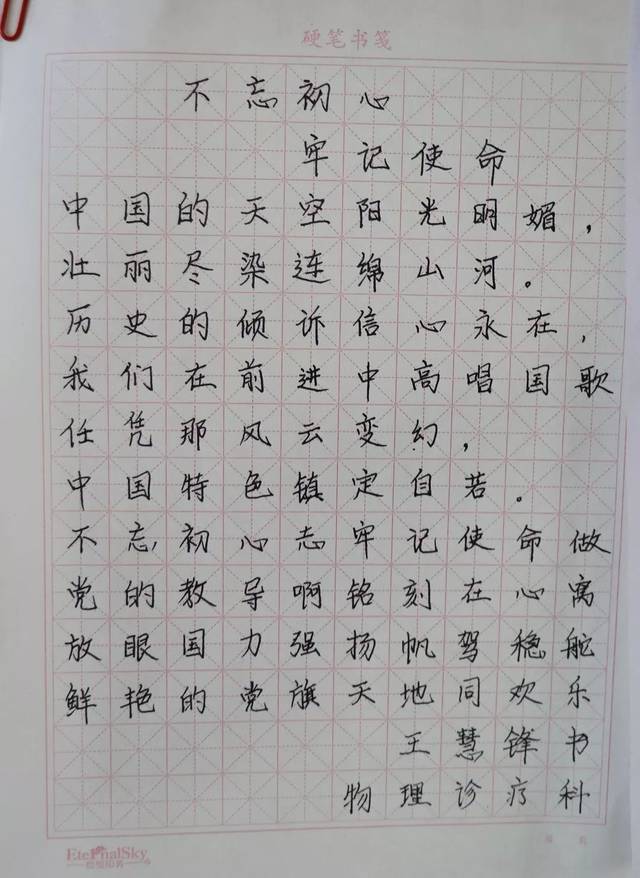 硬笔书笺
不忘初心
牢记使命
中国的天空阳光明媚，
壮丽尽染连绵山河。
历史的倾诉信心永在，
我们在前进中高唱国歌
任凭那风云变幻，
中国特色镇定自若。
不忘初心志牢记使命做
党的教导啊铭刻在心窝
放眼国力强扬帆驾稳舵
鲜艳的党旗天地同欢乐
王慧锋书
物理诊疗科
EternalSky